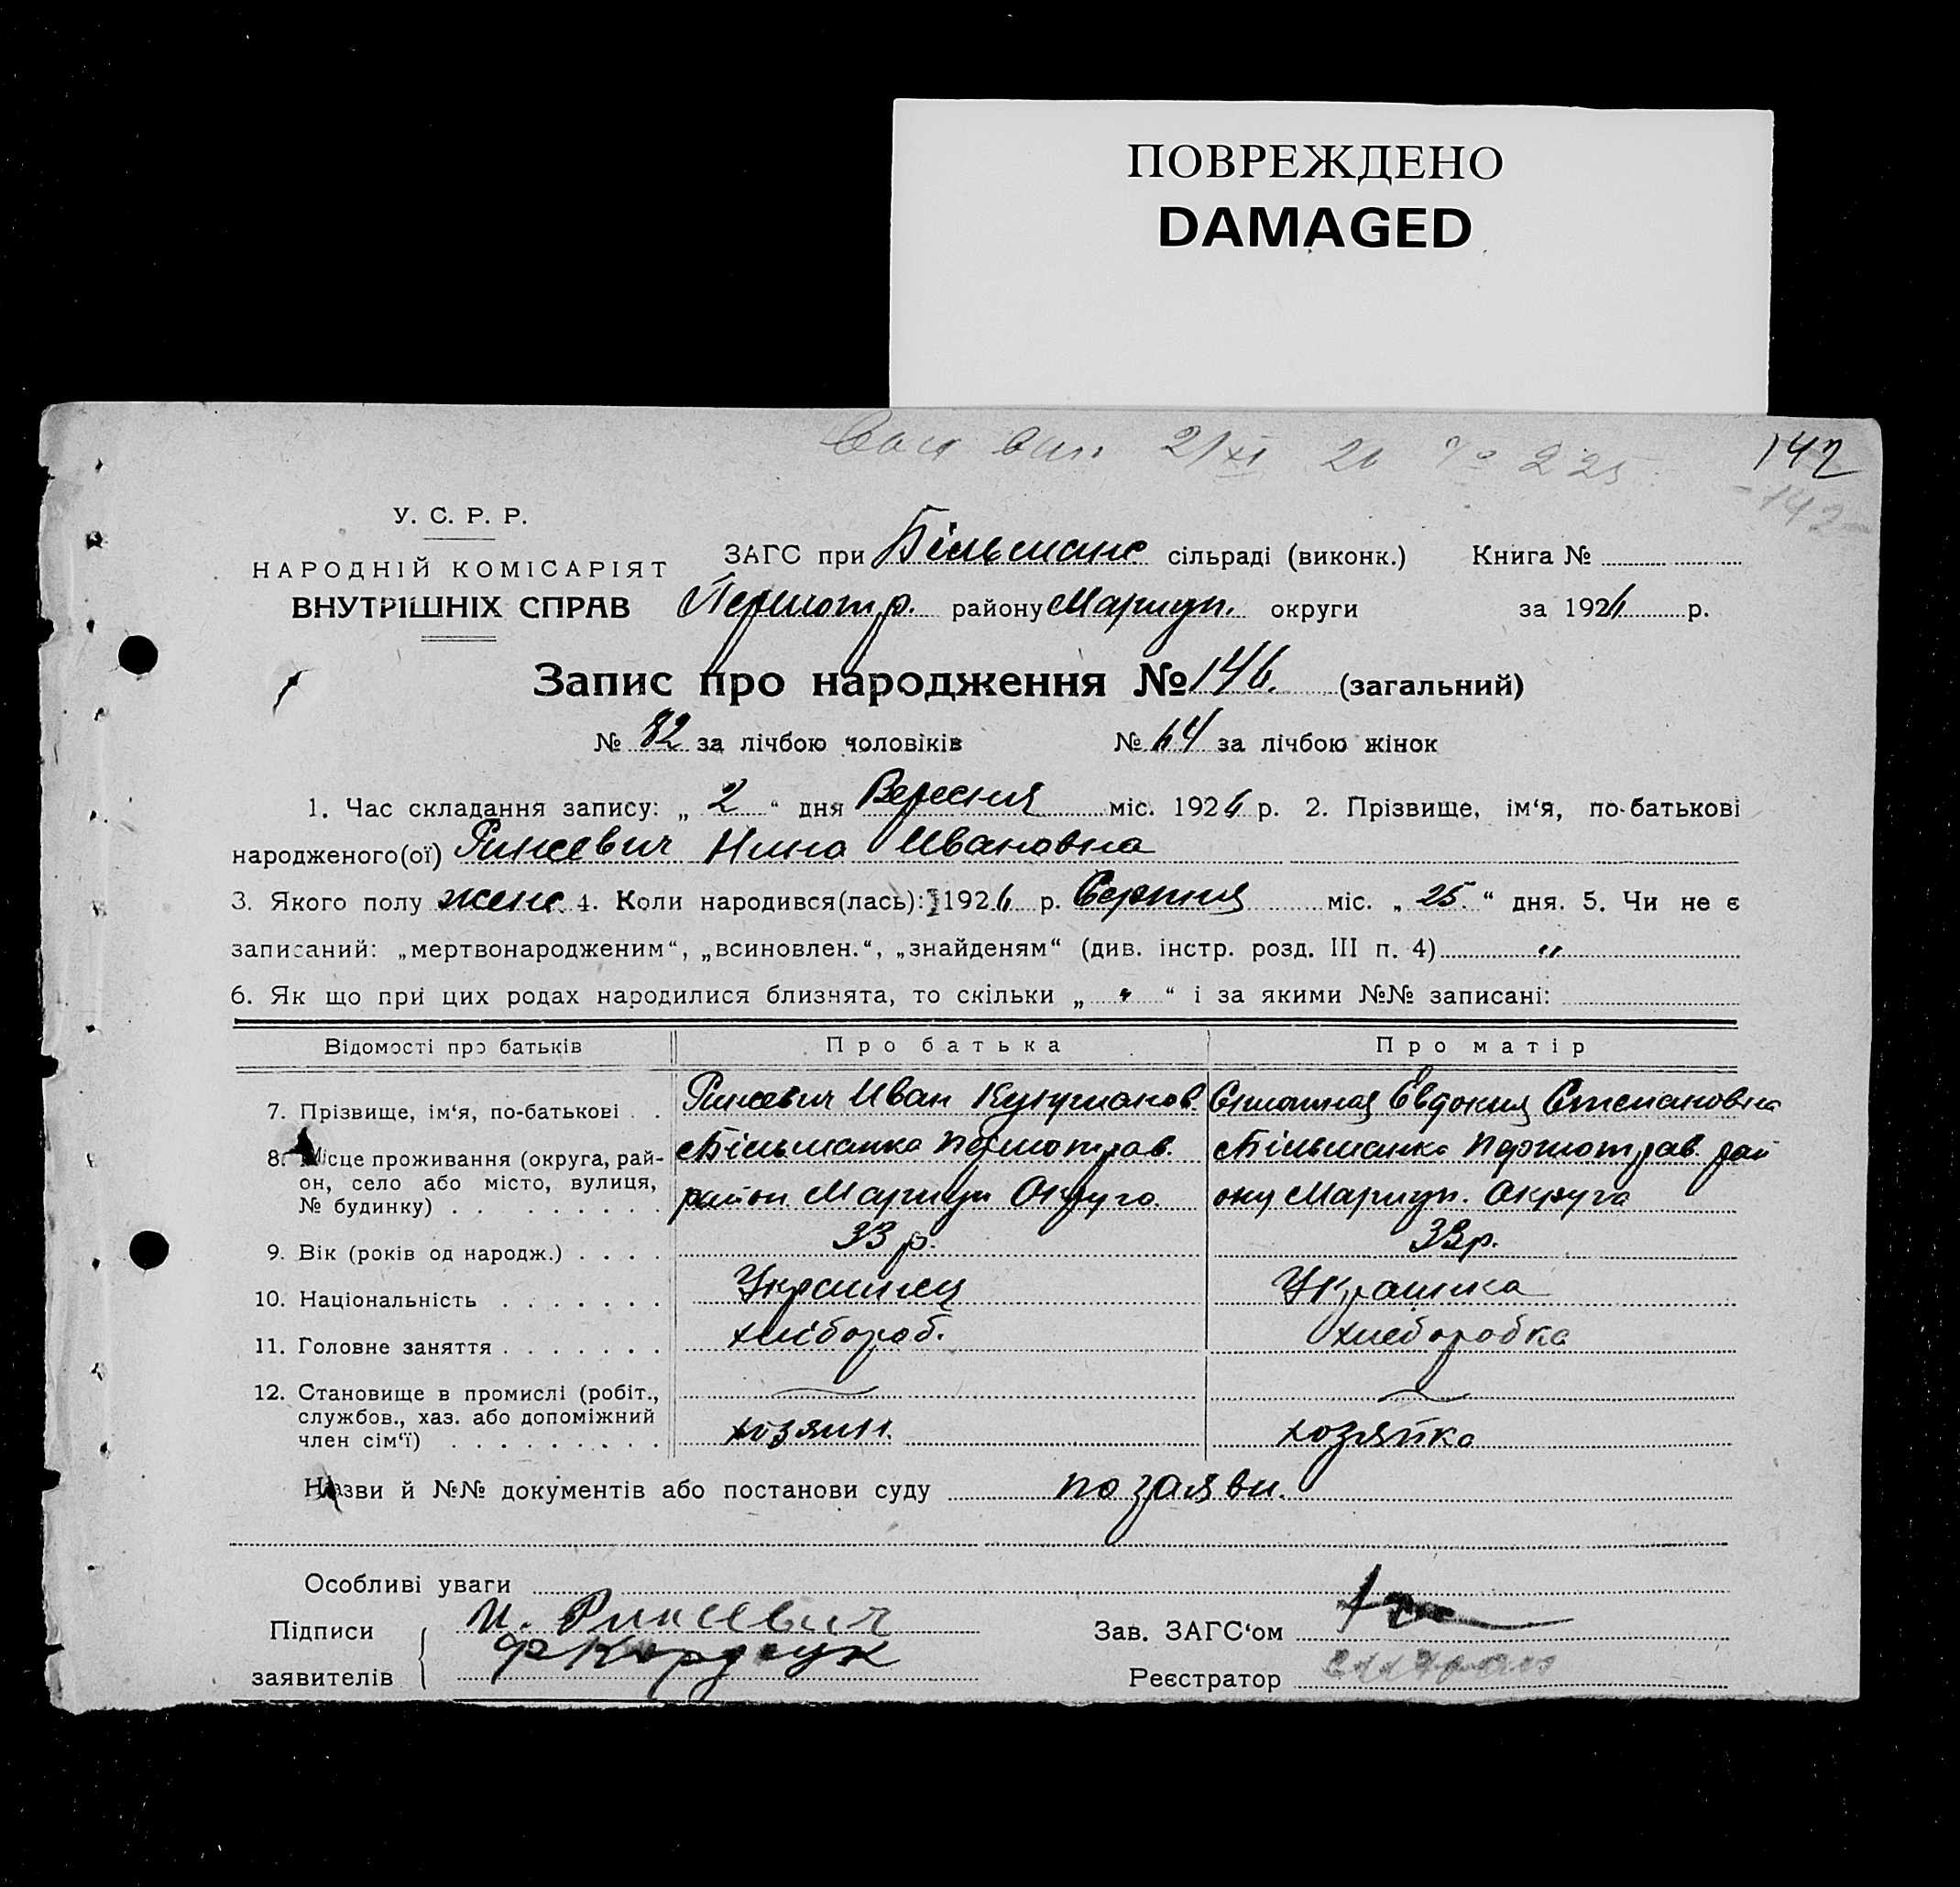 ПОВРЕЖДЕНО
DAMAGED
21/XI 26 № 225
142
142
У. С. Р. Р.
НАРОДНІЙ КОМІСАРІЯТ
ВНУТРІШНІХ СПРАВ
ЗАГС при Більманс. сільраді (виконк.) Книга №
району Мариуп. округи за 1926 р.
Запис про народження № 146. (загальний)
№ 82 за лічбою чоловіків № 64 за лічбою жінок
1. Час складання запису: „ 2 “ дня Вересня міс. 1926 р. 2. Прізвище, ім‘я, по-батькові
народженого(ої) Нина Ивановна
3. Якого полу женс. 4. Коли народився(лась): 1926 р. Серпня міс. „ 25. “ дня. 5. Чи не є
записаний: „мертвонародженим“, „всиновлен.“, „знайденям“ (див. інстр. розд. III п. 4) „
6. Як що при цих родах народилися близнята, то скільки „ “ і за якими №№ записані:
Відомості про батьків Про батька Про матір
7. Прізвище, ім‘я, по-батькові . . Иван Евдокия Степановна
8. Місце проживання (округа, рай- Більманка Першотрав. Більманка Першотрав. рай
он, село або місто, вулиця, район Мариуп Округа. ону Мариуп. Округа
№ будинку) . . . . . . . . .
9. Вік (років од народж.) . . . . 33 р. 33 р.
10. Національність . . . . . . . Украинец Украинка
11. Головне заняття . . . . . . . хлібороб. хлеборобка
12. Становище в промислі (робіт.,
службов., хаз. або допоміжний хозяин. хозяйка
член сім‘ї) . . . . . . . . .
Назви й №№ документів або постанови суду по заяви.
Особливі уваги
Підписи И.
заявителів
Зав. ЗАГС‘ом
Реєстратор